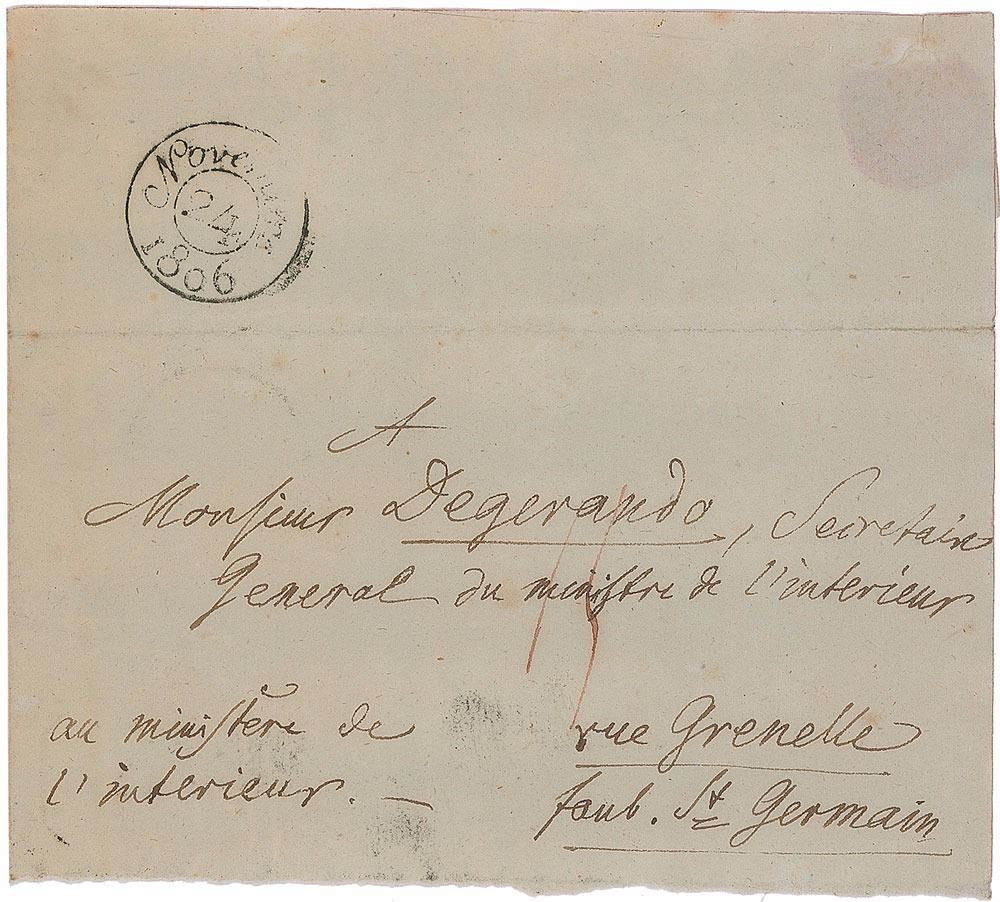 Novembre
24
1806
A
Monsieur Degerando, Secretaire
General du ministre de l'interieur
au ministère de
l'interieur. —
rue Grenelle
faub. St Germain